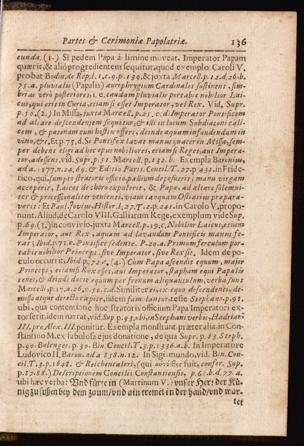 Partes & Cerimoniæ Papolatriæ. 136
cunda. (1.) Si pedem Papa à limine moveat, Imperator Papam
quærit, & alio progredientem sequitur, quod exemplo Caroli V.
probat Bodin. de Rep. l. 1. c. 9. p. 139. & juxta Marcell. p. 12. d. 26. b.
75. a. pluviale (Papalis) aurophrygium Cardinales sustinent, sim-
briæ verò posteriores, &c. caudam pluvialis portabit nobilior Lai-
cus, qui erit in Curia, etiamsi esset Imperator, vel Rex. Vid. Supr.
p. 50. (2.) In Missa, juxta Marcell. p. 21. c. d. Imperator Pontificem
ad altare descendentem sequitur, & ibi in locum Subdiaconi cali-
cem, & patenam cum hostiis offert, deinde aquam infundendam in
vino, &c. Et p. 37. d. Si Pontifex lavat manus quater in Missa, sem-
per debent eligi ad hoc quatuor nobiliores, etiamsi Reges, aut Impera-
tor, adessent. vid. Supr. p. 51. Marcell. p. 132. b. Exempla Baronius,
ad a. 1177. n.
aperit, Laicos de choro expulerit, & Papa, ad altare solemni-
ter & processionaliter venienti, viam tanquam Ostiarius præpara-
verit: Et Paul. Jovius Histor. l. 27. T. 2. p. 22. in Carolo V. propo-
nunt. Aliud, de Carolo VIII. Galliarum Rege, exemplum vide Sup.
p. 69. (3.) in convivio, juxta Marcell. p. 19. c. Nobilior Laicus, etiam
Imperator, aut Rex, aquam ad lavandum Pontificis manus fe-
rat; Ibid. p. 71. a. Pontifice sedente. P. 20. a. Primum ferculum por-
tabit nobilior Princeps, sive Imperator, sive Rex sit. Idem de po-
culo occurrit, Ibid. p. 72. c. (4.) Cum Papa ascendit equum, major
Princeps, etiamsi Rex esset, aut Imperator, stapham equi Papalis
tenet, & deinde ducit equum per frenum aliquantulum, verba sunt
Marcell. p. 17. a. 26. a. 56. c. d. Similiter, & vice equo descendentis, de-
missa atque derelicta capite, iidem famulantur teste Stephano. p. 91.
ubi, qua contentione hoc stratoris officium Papa Imperatori ex-
torserit, idem narrat, vid. Sup. p. 93. b. in Stephani verbis, Hadrian?
III. pro Alex. III. ponitur. Exempla monstrant præter alia, in Con-
stantino M. ex fabulosa ejus donatione, de qua Supr. p. 83. Steph.
p. 90. Bulenger. p. 30. Bin. Concil. T. 3. p. 1336. a. b. In Imperatore
Ludovico II. Baron. ad a. 858. n. 12. In Sigismundo, vid. Bin. Con-
cil. T. 3. p. 1648. & Reichentaleri, (qui autoris fuit, confer. Sup.
p. 17. 18.) Descriptionem Concilii Constantiensis, p. 61. b. d. 77. a.
ubi hæc verba: Und fürte in (Martinum V.) unser Herr der Kü-
nig zu füßen bey dem zaum/ und ain tremel in der hand/ und war-
tet